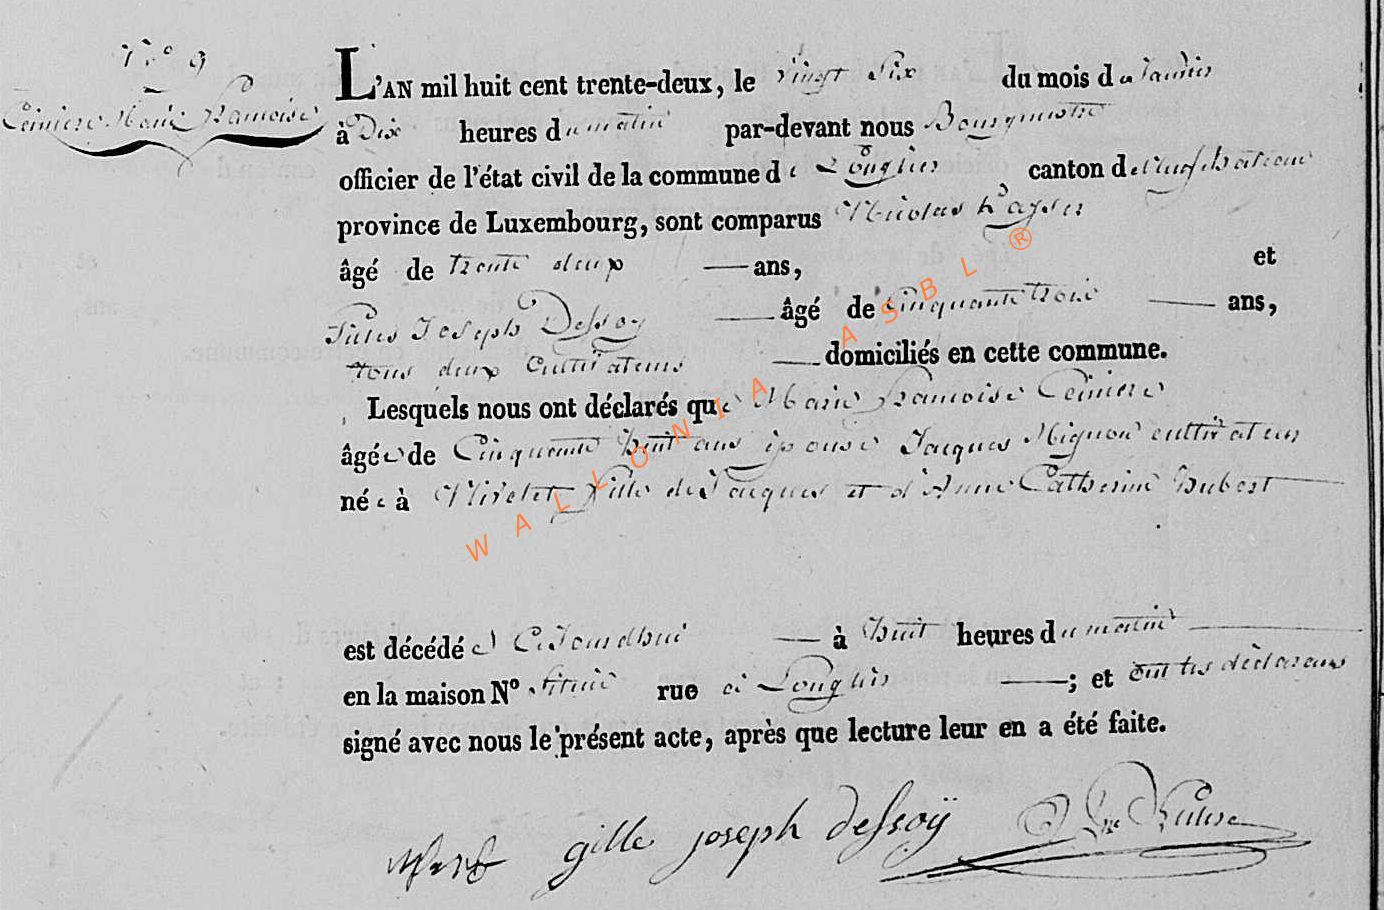 N.° 9
Ceiniere Marie Francoise
L'AN mil huit cent trente-deux, le vingt Six du mois de Janvier
à Dix heures du matin par-devant nous Bourgmestre
officier de l'état civil de la commune de Longlier canton de Neufchateau
province de Luxembourg, sont comparus Nicolas Kayser
âgé de trente deux ans, et
Gilles Joseph Dessoy âgé de Cinquante trois ans,
tous deux Cultivateurs domiciliés en cette commune.
Lesquels nous ont déclarés que Marie Francoise Ceiniere
âgée de Cinquante huit ans épouse Jacques Mignon cultivateur
née à Nivelet fille de Jacques et d'Anne Catherine Hubert
est décédée Cejourdhui à huit heures du matin
en la maison N° située rue à Longlier ; et ont les déclarans
signé avec nous le présent acte, après que lecture leur en a été faite.
gille joseph dessoÿ
WALLONIA ASBL ®